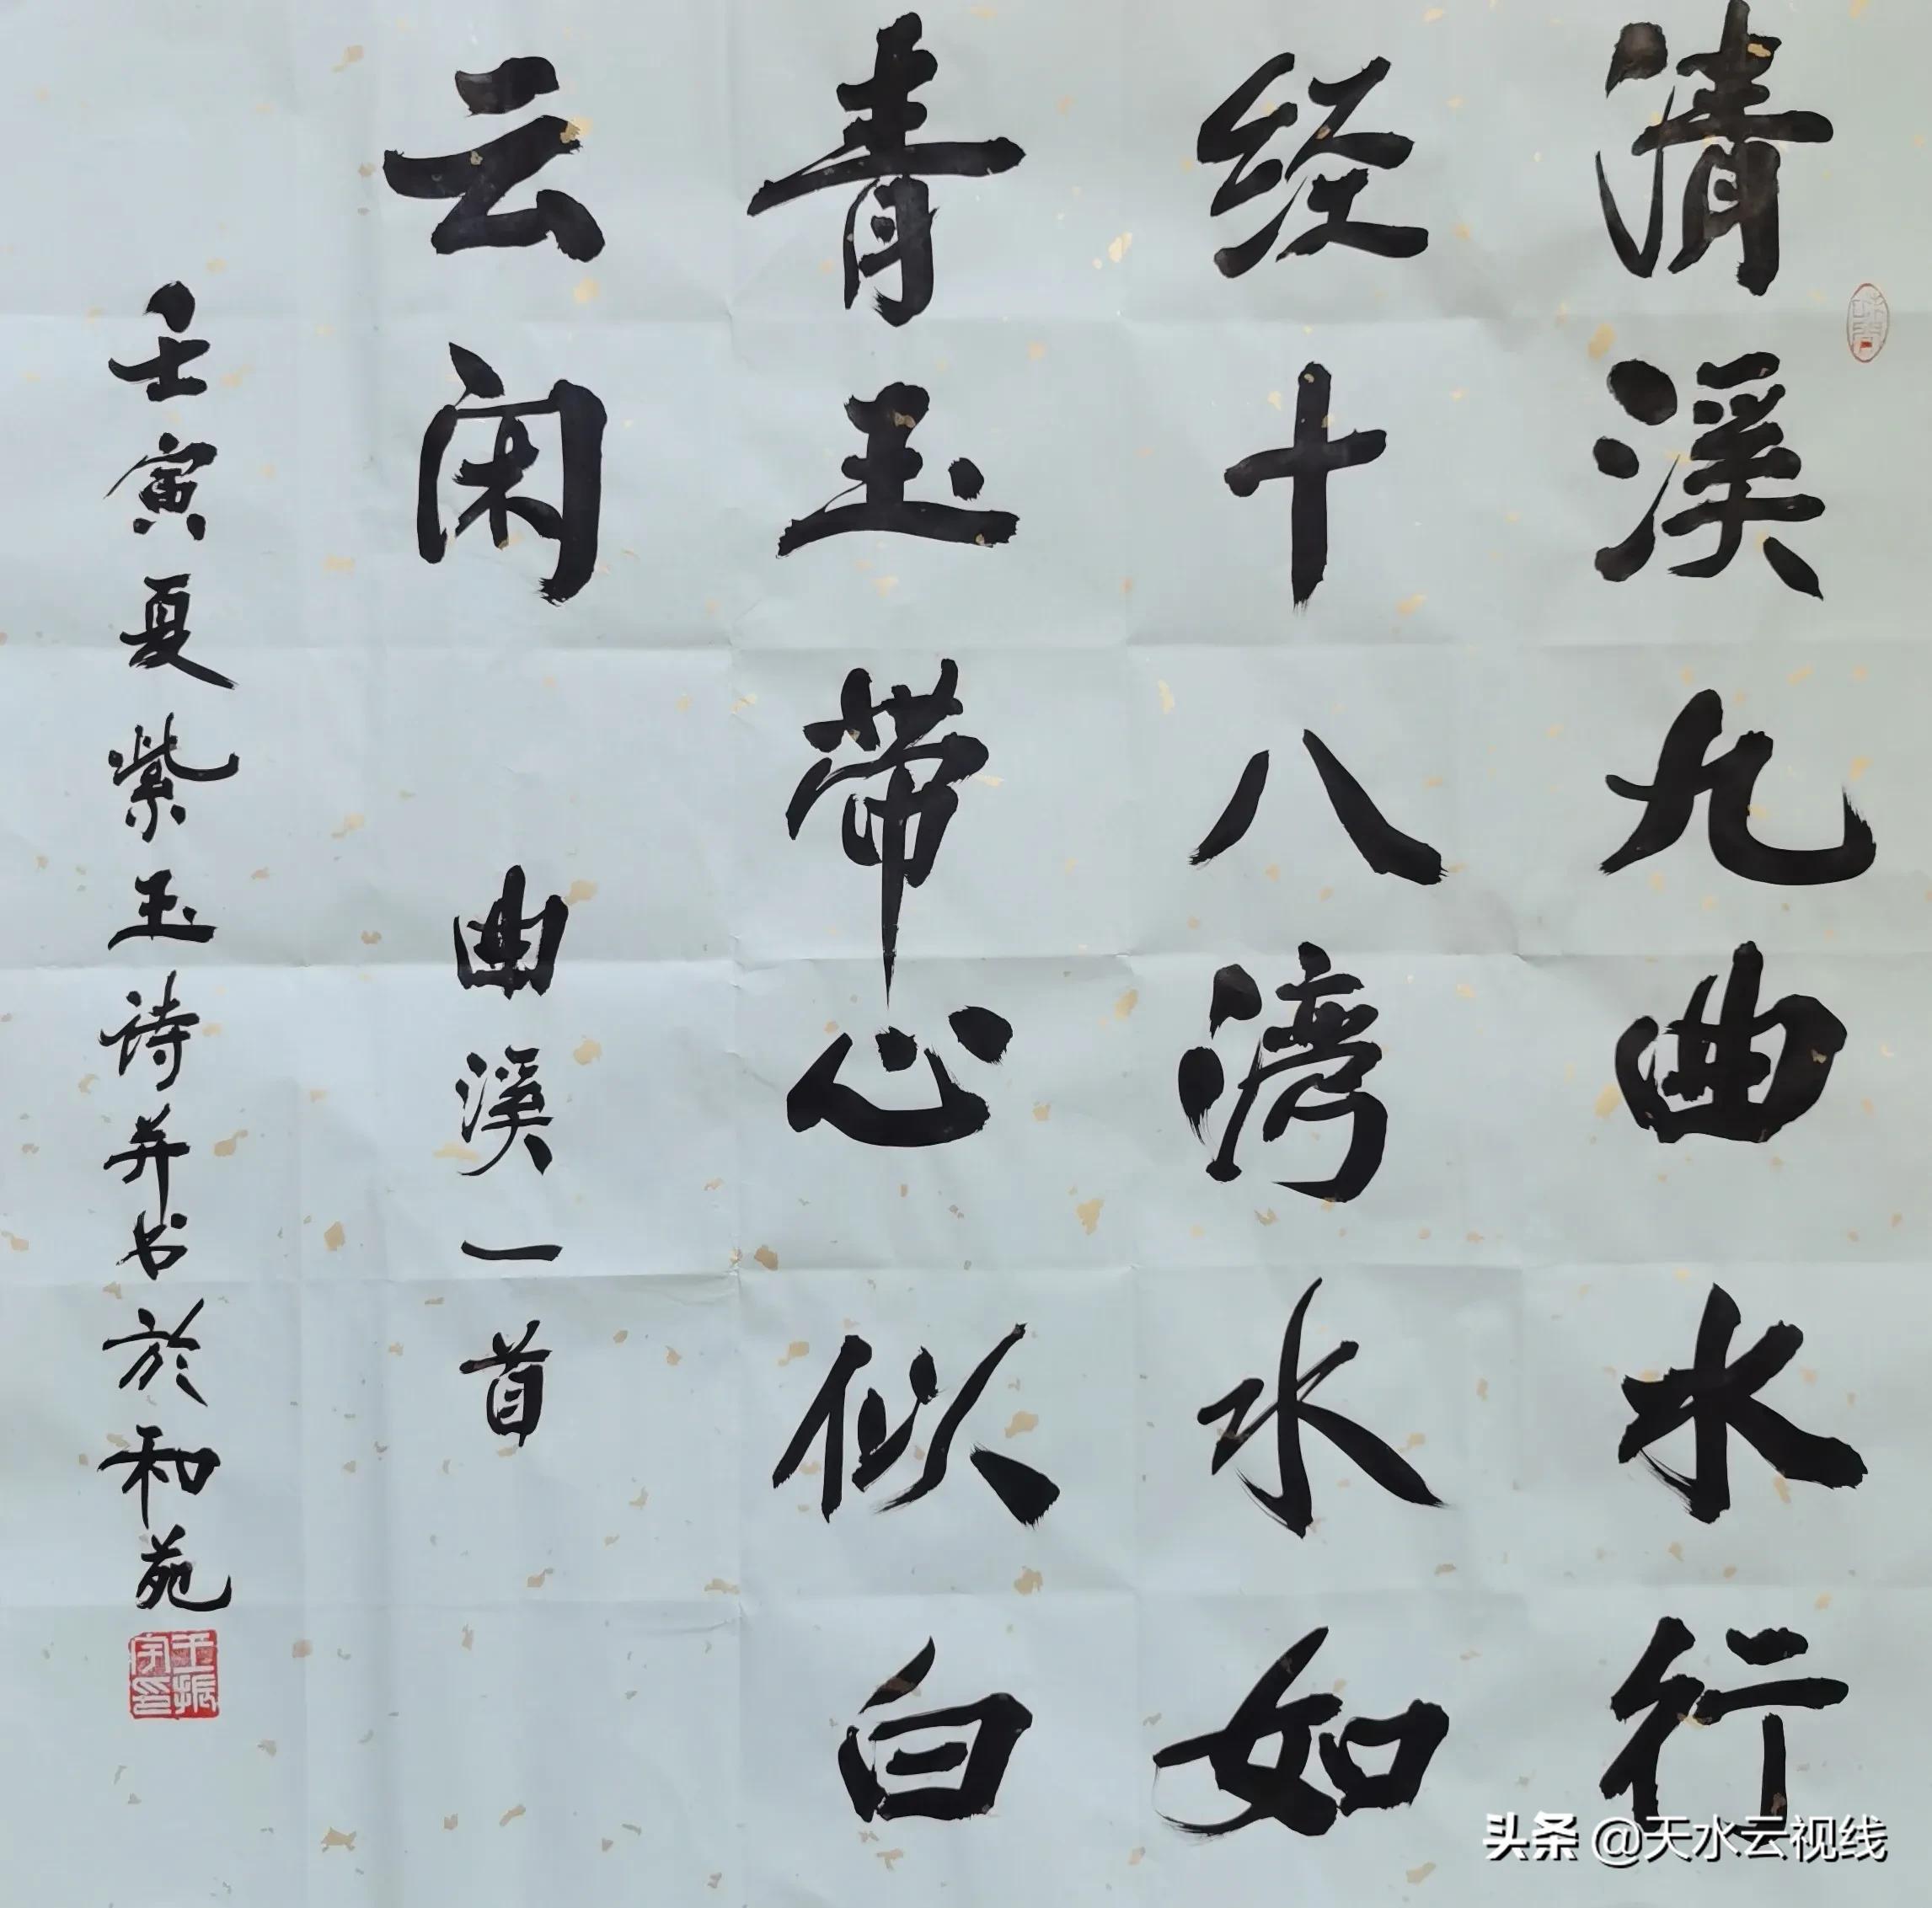 清溪九曲水行
经十八湾水如
青玉带心似白
云闲
曲溪一首
壬寅夏紫玉诗并书於和苑
头条 @天水云视线